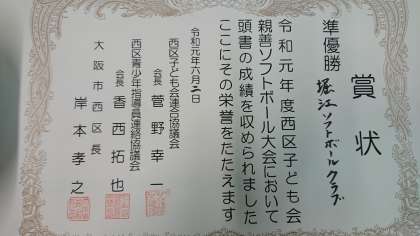 賞状
準優勝
堀江ソフトボールクラブ
令和元年度西区子ども会
親善ソフトボール大会において
頭書の成績を収められました
ここにその栄誉をたたえます
令和元年六月二日
西区子ども会連合協議会
会長 菅野幸一
西区青少年指導員連絡協議会
会長 香西拓也
大阪市西区長
岸本孝之